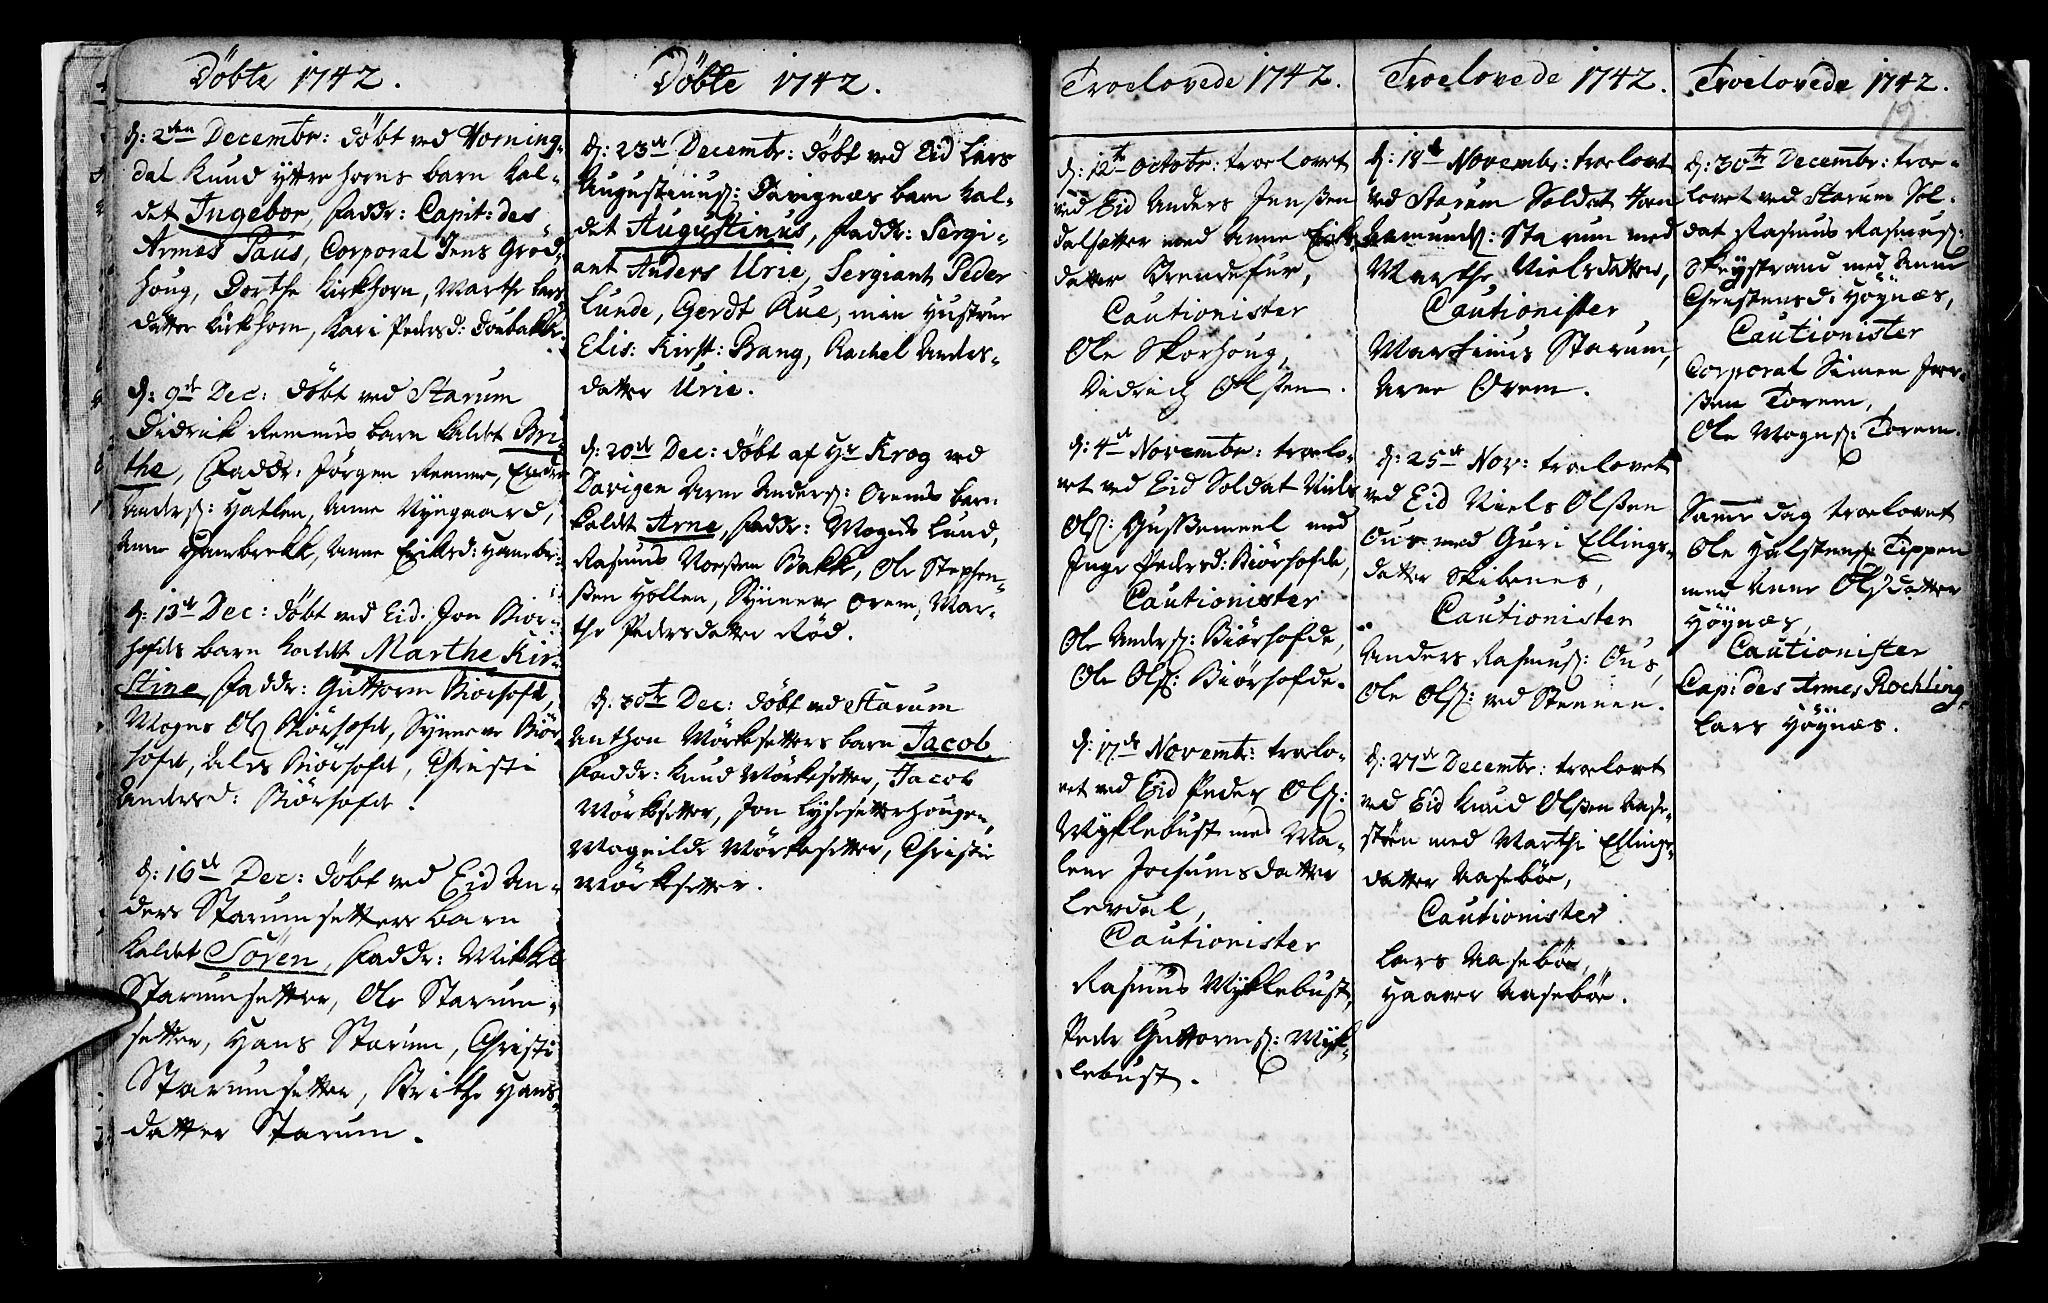 Döbte 1742.
d: 2den Decembr: döbt ved Horning-
dal Knud yttre horns barn kal-
det Ingebor, Faddr: Capit: des
Armes Paus, Corporal Jens Grod-
houg, Dorthe Kirkhorn, Marthe Lars-
datter Kirkhorn, Kari Pedersd:
d: 9de Dec: döbt ved Starum
Didrik Remmis barn kaldet Bri-
the, Faddr: Jörgen Remme,
Anders: Hatlen, Anne Nÿegaard,
Anne Hanebrekk, Anne Eriksd: Hanebr:
d: 13de Dec: döbt ved Eid Jon Biör-
hofds barn kaldt Marthe Kir-
stine, Faddr: Guttorm Biörhofd,
Mogns Ols Biörhofd, Synneve Biör-
hofd, Biörhofd, Christi
Andersd: Biörhofd.
d: 16de Dec: döbt ved Eid An-
ders Starumsetters barn
kaldet Sören, Faddr: Mikkel
Starumsetter, Ole Starum-
setter, Hans Starum, Christi
Starumsetter, Brithe Hans-
datter Starum.
Döbte 1742.
d: 23de Decembr: döbt ved Eid Lars
Augustinus: Davignæs barn kal-
det Augustinus, Faddr: Sergi-
ant Anders Urie, Sergiant Peder
Lunde, Gerdt Rue, min Hustrue
Elis: Kirst: Bang, Rachel Anders-
datter Urie.
d: 20de Dec: döbt af Hr Krog ved
Davigen Arne Anders: Orems barn
kaldet Arne, Faddr: Mogns Lund,
Rasmus Bakk, Ole Stephen-
ßen Hollen, Synneve Orem, Mar-
the Pedersdatter Röd.
d: 30te Dec: döbt ved Starum
Anthon Mörksetters barn Jacob,
Faddr: Knud Mörksetter, Jacob
Mörksetter, Jon Lÿsesetterhougen,
Magnilde Mörksetter, Christie
Mörksetter.
Troelovede 1742.
d: 12te Octobr: troelovet
ved Eid Anders Jenßen
dalsetter med Anne Erichs
datter Brendefur,
Cautionister
Ole Skorhoug,
Didrich Olßen.
d: 4de Novembr: troelo-
vet ved Eid Soldat Niels
Ols: Gusßemeel med
Inge Pedersd: Biörhofde,
Cautionister
Ole Anders: Biörhofde,
Ole Ols: Biörhofde.
d: 17de Novembr: troelo-
vet ved Eid Peder Ols:
Mÿklebust med Ma-
lene Jochumsdatter
Levdal,
Cautionister
Rasmus Mÿklebust,
Peder Guttorms: Mÿk-
lebust.
Troelovede 1742.
d: 18de Novembr: troelovet
ved Starum Soldat
Aamunds: Starum med
Marthe Nielsdatter,
Cautionister
Martinus Starum,
Arne Orem.
d: 25de Nov: troelovet
ved Eid Niels Olßen
Ous med Guri Ellings-
datter Skibenes,
Cautionister
Anders Rasmus: Ous,
Ole Ols: ved Stennen.
d: 27de Decembr: troelovet
ved Eid Knud Olßen Aase-
stöen med Marthe Ellings-
datter Aaseböe,
Cautionister
Lars Aaseböe,
Haaver Aaseböe.
Troelovede 1742.
12
d: 30te Decembr: troe-
lovet ved Starum Sol-
dat Rasmus Rasmus:
Skeystrand med Anne
Christensd: Höÿnæs,
Cautionister
Corporal Simen Iver-
ßen Torem,
Ole Mogns: Torem.
Samme dag troelovet
Ole Halstens: Tippen
med Anne Olsdatter
Höÿnæs,
Cautionister
Cap: des Armes Rochling,
Lars Höÿnæs.